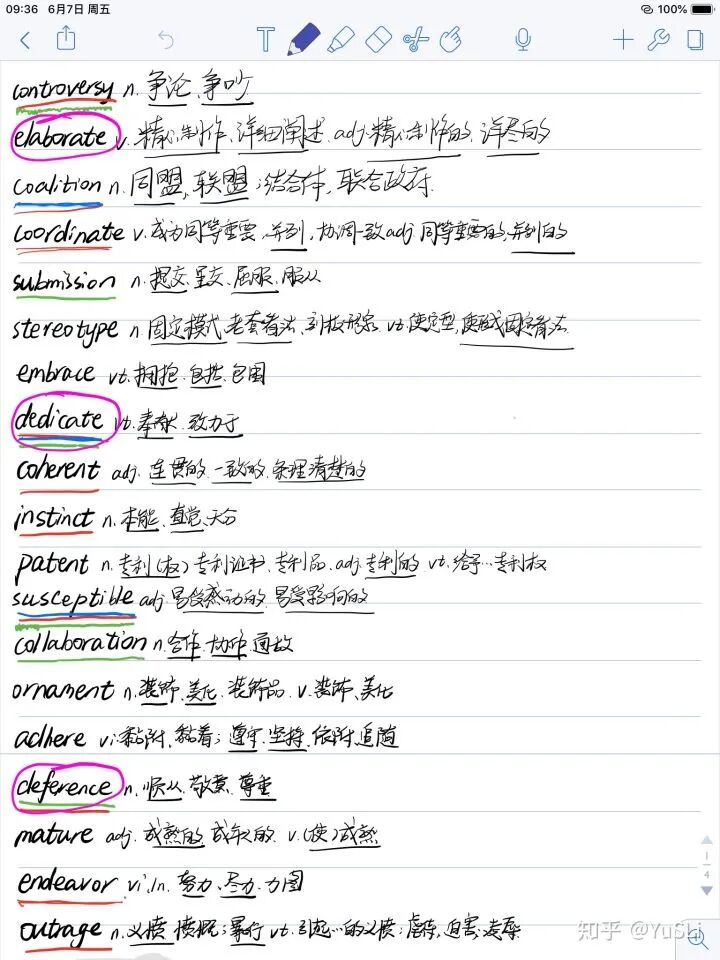 09:36 6月7日 周五
100%
controversy n. 争论、争吵
elaborate v. 精心制作、详细阐述. adj. 精心制作的. 详尽的
coalition n. 同盟, 联盟; 结合体, 联合政府.
coordinate v. 成为同等重要, 并列, 协调一致 adj. 同等重要的, 并列的
submission n. 提交. 呈交. 屈服. 服从
stereotype n. 固定模式. 老套看法, 刻板形象 vt. 使定型, 使成固定看法.
embrace vt. 拥抱. 包括. 包围
dedicate vt. 奉献. 致力于
coherent adj. 连贯的. 一致的. 条理清楚的
instinct n. 本能、直觉、天分
patent n. 专利(权) 专利证书. 专利品. adj. 专利的 vt. 给予…专利权
susceptible adj. 易受感动的. 易受影响的
collaboration n. 合作. 协作. 通敌
ornament n. 装饰、美化. 装饰品. v. 装饰、美化
adhere vi. 黏附、黏着; 遵守. 坚持. 依附. 追随
deference n. 顺从. 敬意. 尊重
mature adj. 成熟的. 成年的. v. (使)成熟
endeavor vi./n. 努力、尽力. 力图
outrage n. 义愤. 愤慨; 暴行 vt. 引起…的义愤; 虐待, 迫害. 凌辱.
1
4
知乎 @YuShi